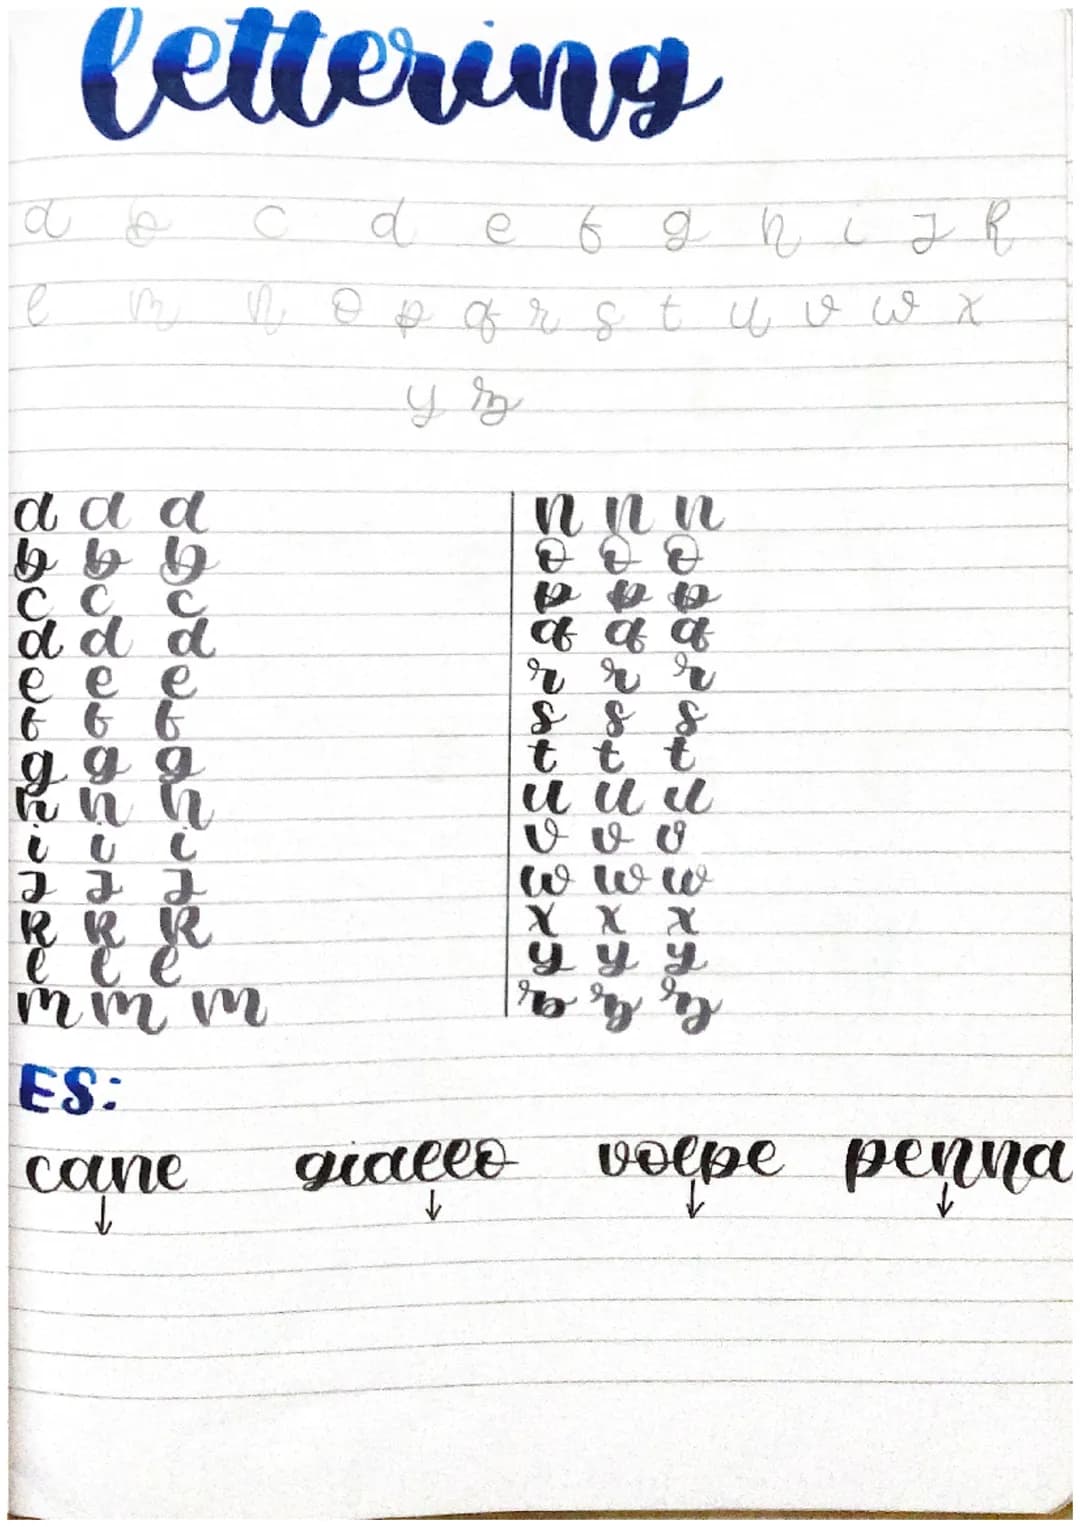 lettering
a b c d e f g h i j k
l m n o p q r s t u v w x
y z
a a a
b b b
c c c
d d d
e e e
f f f
g g g
h h h
i i i
j j j
k k k
l l l
m m m
n n n
o o o
p p p
q q q
r r r
s s s
t t t
u u u
v v v
w w w
x x x
y y y
z z z
ES:
cane giallo volpe penna
↓ ↓ ↓ ↓